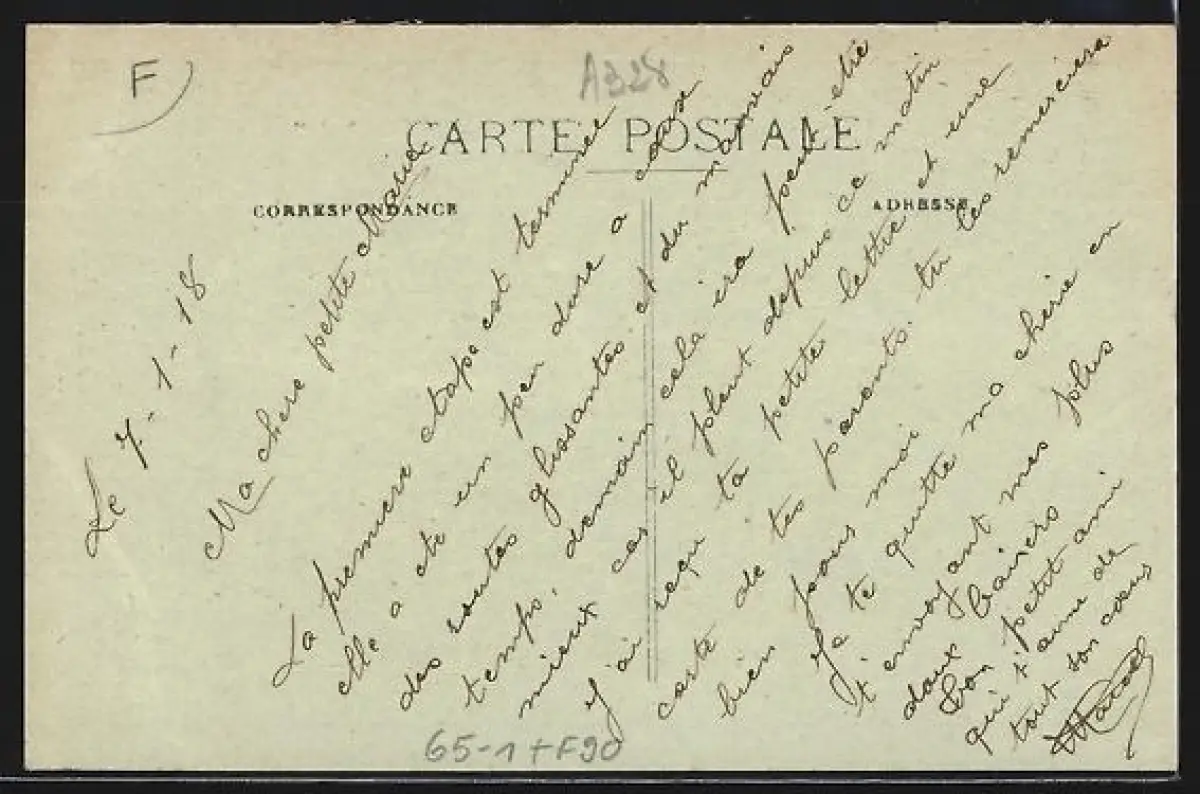 F
A328
CARTE POSTALE
CORRESPONDANCE
ADRESSE
Le 7-1-18
Ma chere petite Marie
La premiere etape est terminee
elle a ete un peu dure a cause
des routes glissantes et du mauvais
temps, demain cela ira peut-etre
mieux car il pleut depuis ce matin
J'ai reçu ta petite lettre et une
carte de tes parents. tu les remerciera
bien pour moi
Je te quitte ma cherie en
t'envoyant mes plus
doux baisers
Ton petit ami
qui t'aime de
tout son cœur
65-1+F90